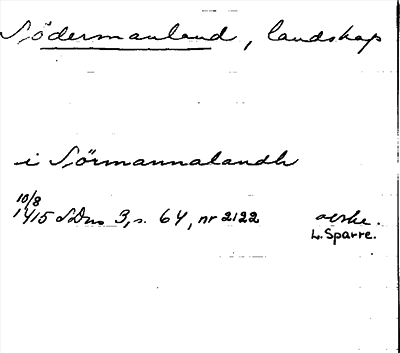 Södermanland, landskap
i Sörmannalandh
10/8
1415 SDns 3, s. 64, nr 2122 avskr.
L. Sparre.